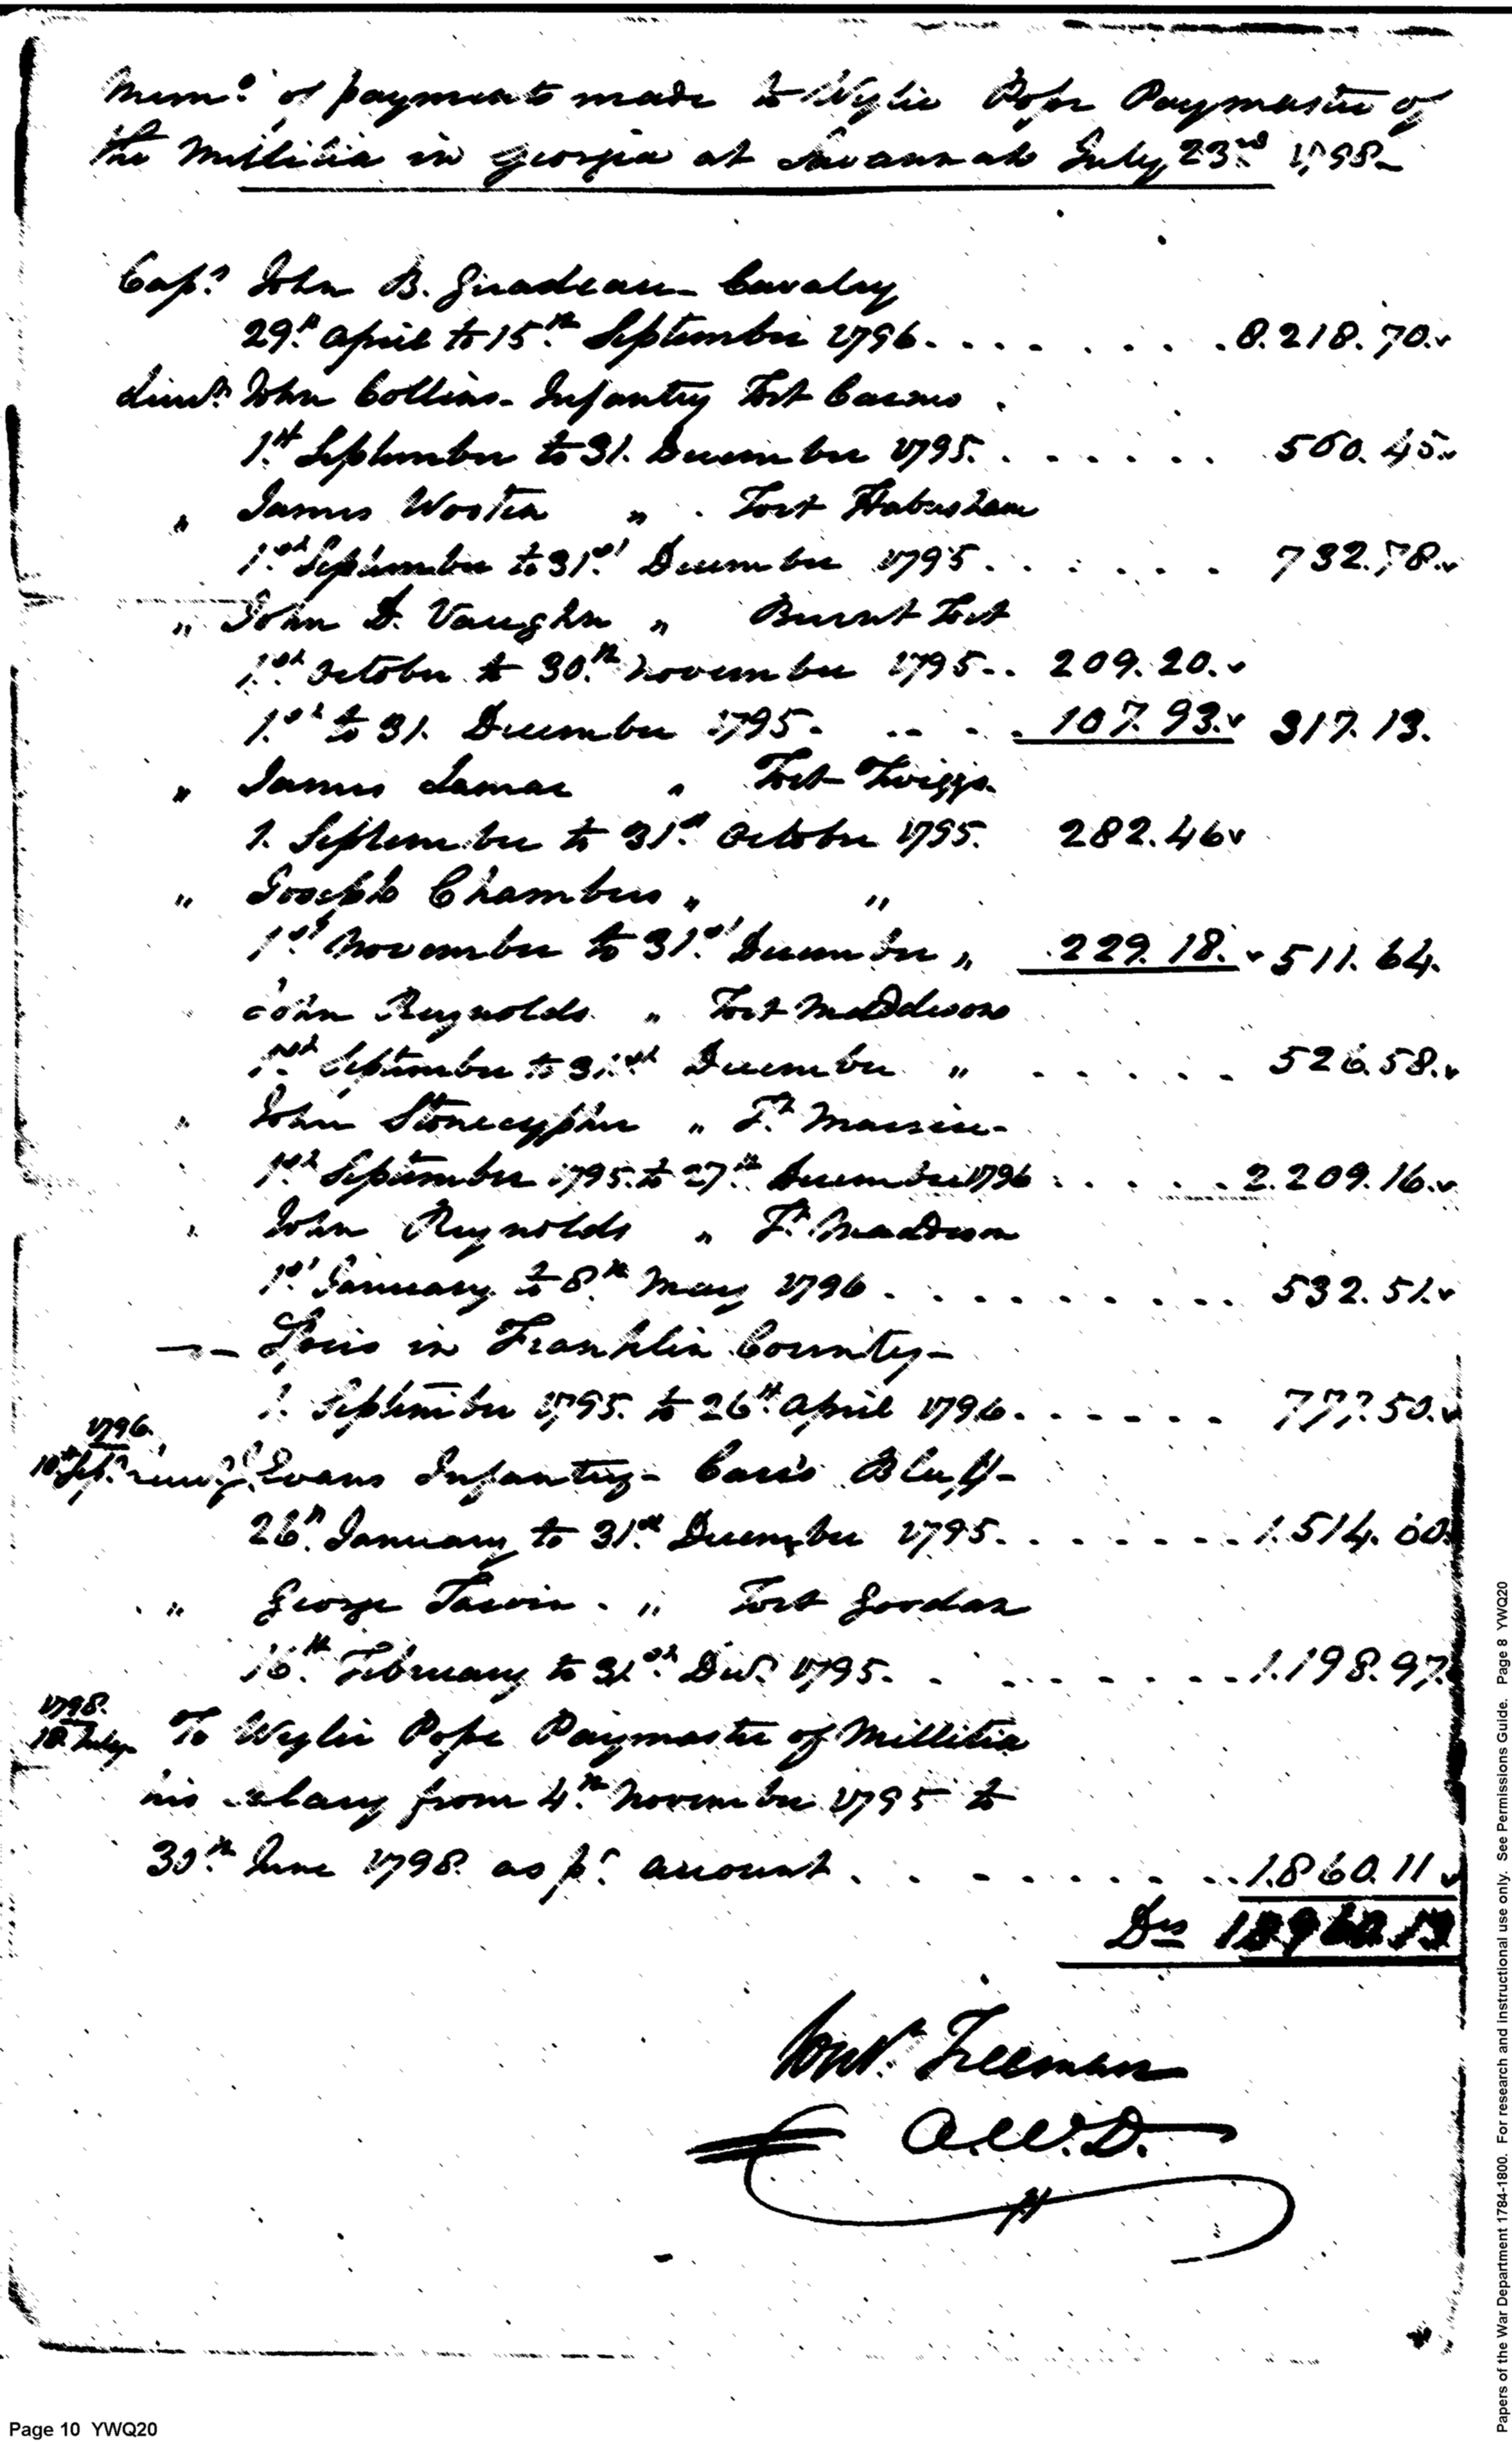 Memo. of payments made to Wylie Pope Paymaster of
the Millitia in Georgia at Savannah July 23rd 1798
Capt. John B. Guadeau - Cavalry
29th April to 15th September 1796 . . . . . . . . 8.218.70.
Lieut. John Collins - Infantry Fort
1st September to 31. December 1795. . . . . . . 560.45.
" James Wootin " Fort Habersham
1st September to 31st December 1795. . . . . . 732.78.
" John D. Vaughn " Burnt Fort
1st October to 30th November 1795 . . 209.20.
1st to 31. December 1795. . . . . 107.93. 317.13.
" James Lamar " Fort Twiggs.
1. September to 31st October 1795. 282.46
" Joseph Chambers " "
1st November to 31st December " 229.18. 511.64.
John Reynolds " Fort Maddison
1st September to 31st December " . . . . . 526.58.
" John Stonecypher " Ft. Massive-
1st September 1795. to 27th December 1796 . . . . . 2.209.16.
" John Reynolds " Ft. Maddison
1st January to 8th May 1796 . . . . . . . . . . 532.51.
in Franklin County -
1. September 1795. to 26th April 1796. . . . . . . 777.50.
1796.
10th Sept. Evans Infantry - Cars Bluff -
26th January to 31st December 1795. . . . . . . . 1.514.60
" George Tarvin . " Fort Gordan
16th February to 31st Decr. 1795. . . . . . . . . 1.198.97
1798.
18 July To Wylie Pope Paymaster of Millitia
his salary from 4th November 1795 to
30th June 1798. as pr. account . . . . . . . . 1.860.11
Drs 18960.13
Const. Freeman
A.W.D.
Page 10 YWQ20
Papers of the War Department 1784-1800. For research and instructional use only. See Permissions Guide. Page 8 YWQ20